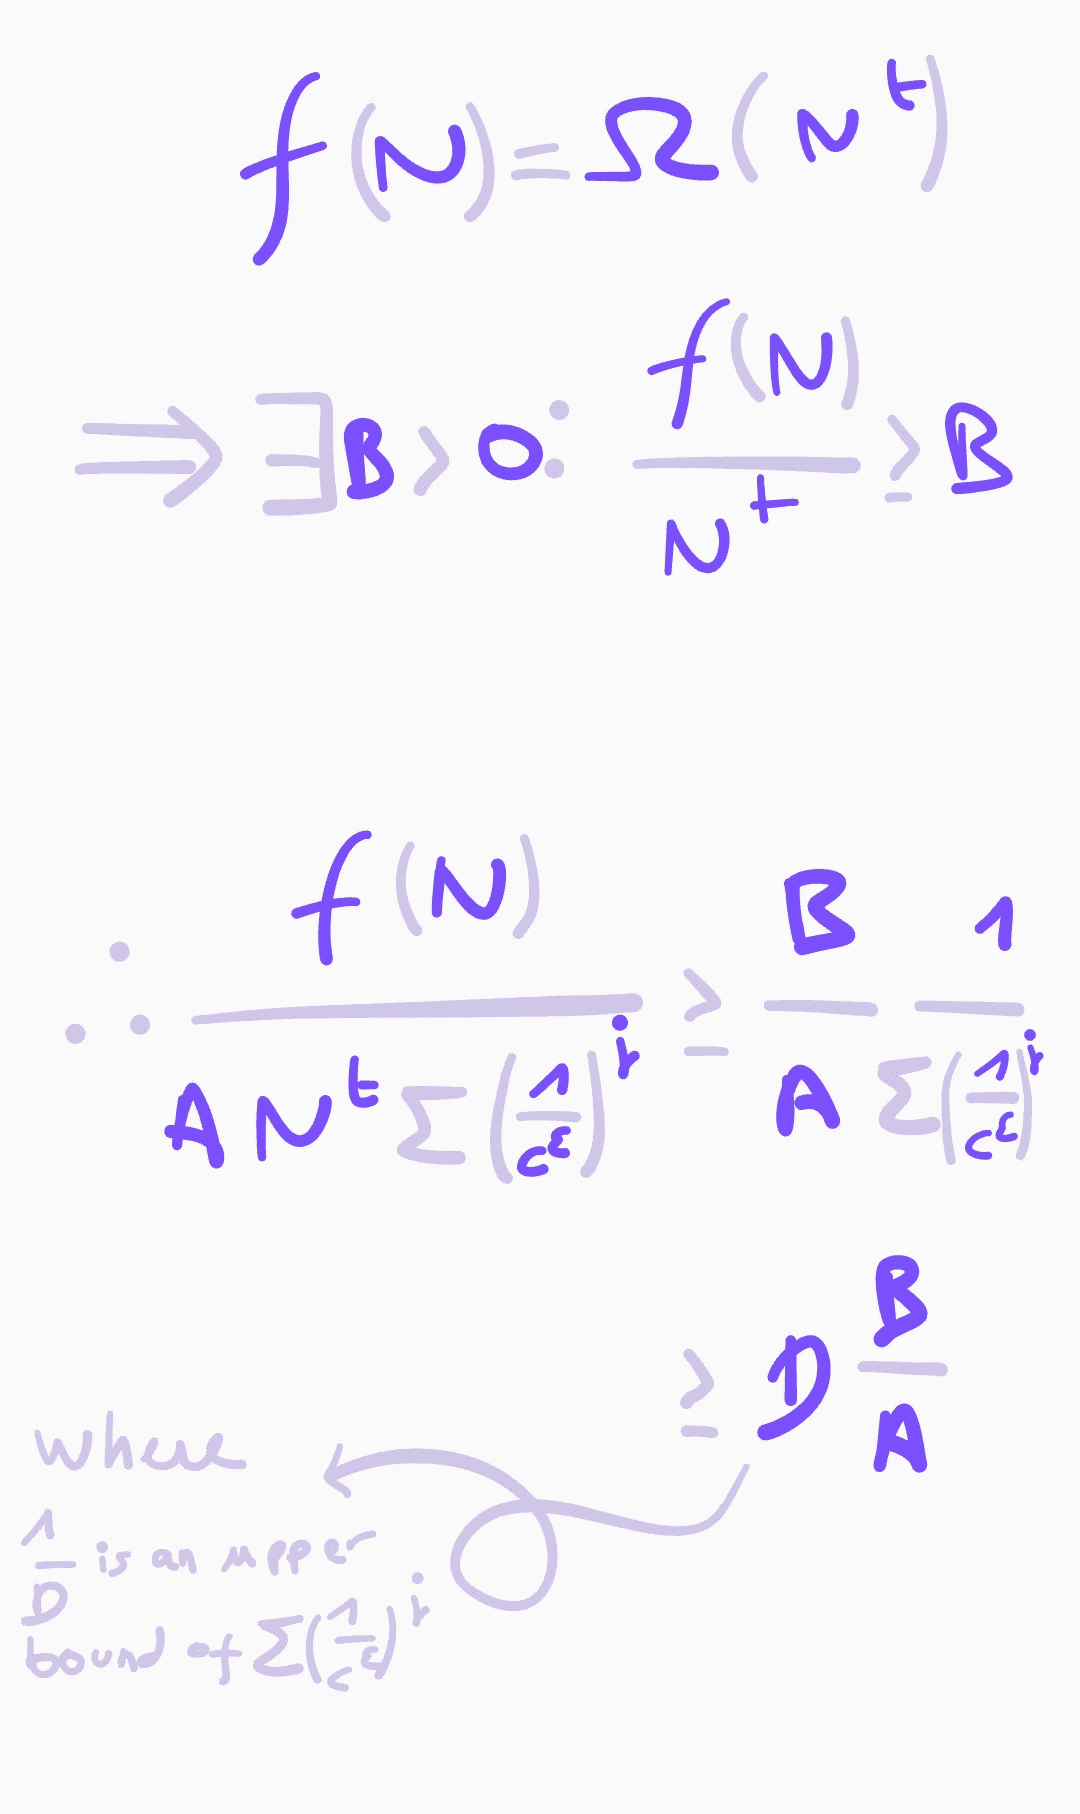 f(N) = Ω(N^t)
⇒ ∃B > 0 : f(N) / N^t ≥ B
∴ f(N) / (A N^t Σ(1/c^ε)^i) ≥ B/A 1/Σ(1/c^ε)^i
≥ D B/A
where
1/D is an upper
bound of Σ(1/c^ε)^i